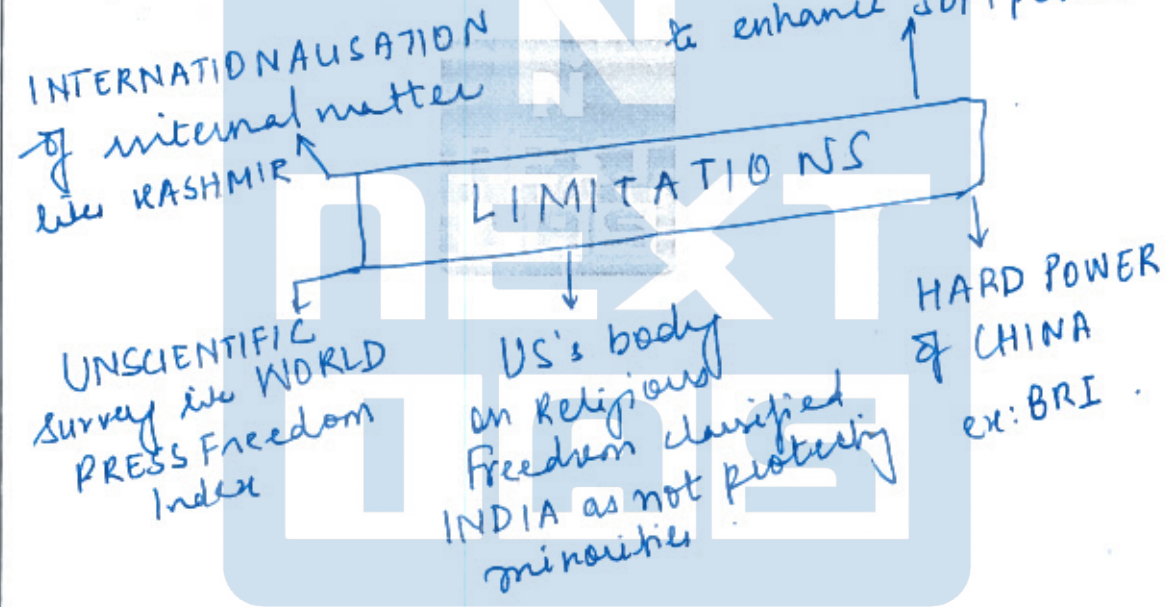 to enhance
INTERNATIONALISATION
of internal matter
like KASHMIR
LIMITATIONS
UNSCIENTIFIC
survey like WORLD
PRESS Freedom
Index
US's body
on Religious
Freedom classified
INDIA as not protecting
minorities
HARD POWER
of CHINA
ex: BRI.
NEXT
IAS